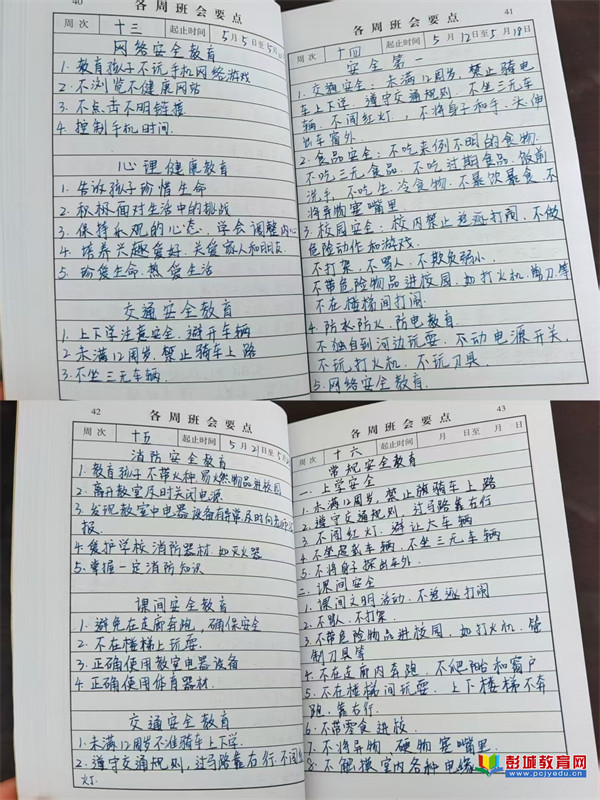 40
各周班会要点
周次 十三 起止时间 5月5日至5月
网络安全教育
1. 教育孩子不玩手机网络游戏
2. 不浏览不健康网站
3. 不点击不明链接
4. 控制手机时间.
心理健康教育
1. 告诉孩子珍惜生命
2. 积极面对生活中的挑战
3. 保持乐观的心态, 学会调整内心
4. 培养兴趣爱好. 关爱家人和朋友
5. 珍爱生命. 热爱生活
交通安全教育
1. 上下学注意安全. 避开车辆
2. 未满12周岁, 禁止骑车上路
3. 不坐三元车辆.
41
各周班会要点
周次 十四 起止时间 5月12日至5月18日
安全第一
1. 交通安全: 未满12周岁, 禁止骑电
车上下学. 遵守交通规则. 不坐三元车
辆. 不闯红灯., 不将身子和手、头伸
出车窗外
2. 食品安全: 不吃来例不明的食物.
不吃三元食品. 不吃过期食品. 饭前
洗手. 不吃生、冷食物. 不暴饮暴食. 不
将异物塞嘴里
3. 校园安全: 校内禁止追逐打闹, 不做
危险动作和游戏.
不打架, 不骂人. 不欺负弱小.
不带危险物品进校园. 如打火机. 剪刀等
不在楼梯间打闹.
4. 防水防火, 防电教育.
不独自到河边玩耍. 不动电源开关,
不玩打火机. 不玩刀具.
5. 网络安全教育.
42
各周班会要点
周次 十五 起止时间 5月21日至5月2
消防安全教育
1. 教育孩子不带火种易燃物品进校园
2. 离开教室及时关闭电源
3. 发现教室中电器设备有异常及时向老师汇
报.
4. 爱护学校消防器材. 如灭火器
5. 掌握一定消防知识
课间安全教育
1. 避免在走廊奔跑, 确保安全
2. 不在楼梯上玩耍.
3. 正确使用教室电器设备
4. 正确使用体育器材.
交通安全教育
1. 未满12周岁不准骑车上下学.
2. 遵守交通规则, 过马路靠右行. 不闯红
灯.
43
各周班会要点
周次 十六 起止时间 月 日至 月 日
常规安全教育
一. 上学安全
1. 未满12周岁, 禁止骑车上路
2. 遵守交通规则. 过马路靠右行
3. 不闯红灯. 避让大车辆
4. 不坐超载车辆, 不坐三元车辆
5. 不将身子探出车外.
二. 课间安全
1. 课间文明活动. 不追逐打闹
2. 不骂人. 不打架.
3. 不带危险物品进校园. 如打火机. 管
制刀具等
4. 不在走廊内奔跑. 不爬和窗户
5. 不在楼梯间玩耍. 上下楼梯不奔
跑. 靠右行.
6. 不带零食进校
7. 不将异物. 硬物塞嘴里.
8. 不触摸室内各种电缘
彭城教育网
www.pcjyedu.cn